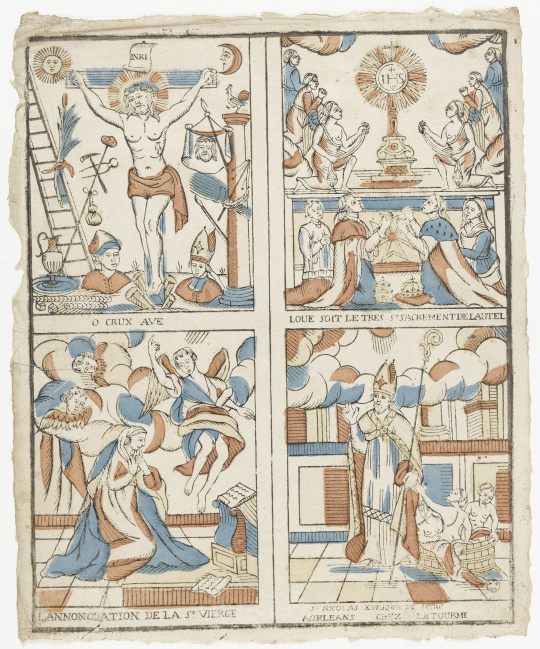 INRI
IHS
O CRUX AVE
LOUE SOIT LE TRES St SACREMENT DE LAUTEL
LANNONCIATION DE LA St VIERGE
St NICOLAS EVESQUE DE MIRE
AORLEANS CHEZ LETOURMI